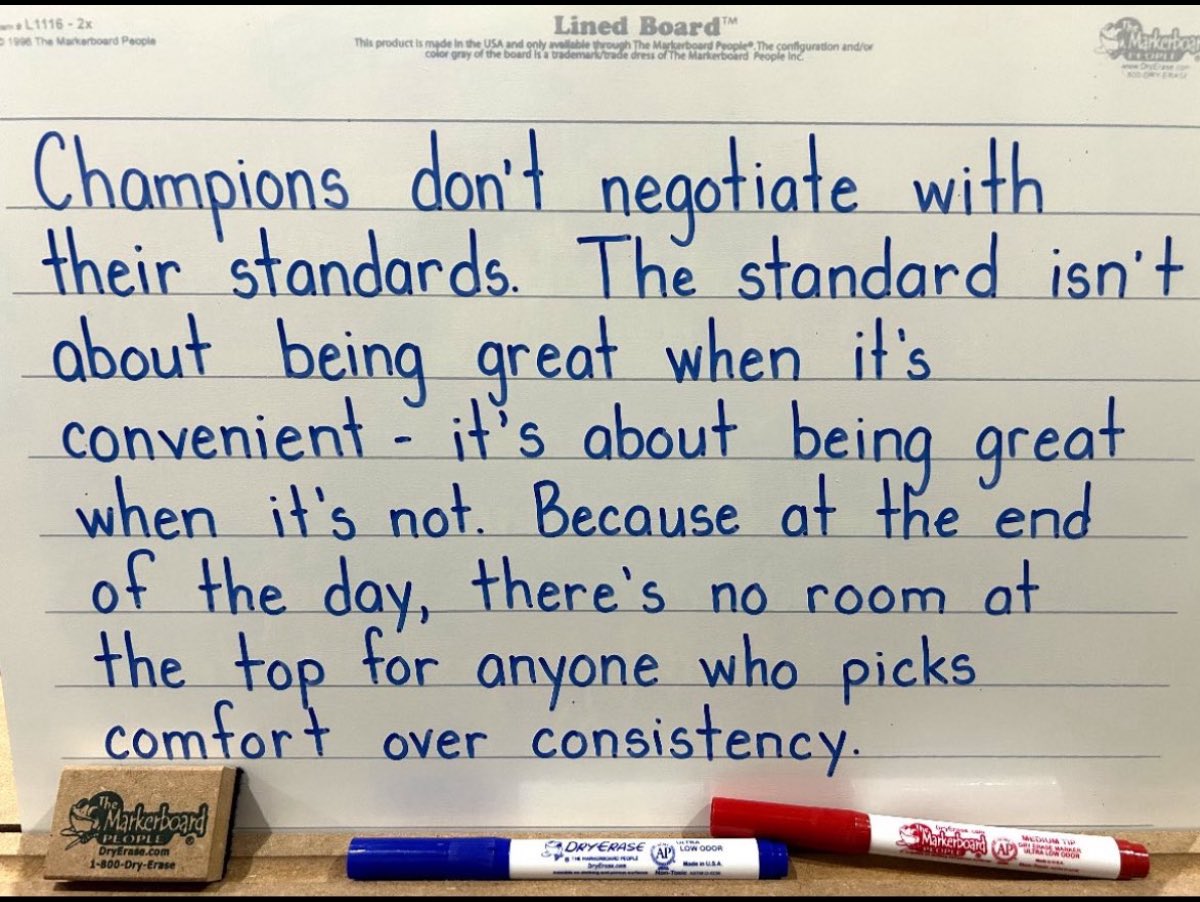 L1116 - 2x
1996 The Markerboard People
Lined Board™
This product is made in the USA and only available through The Markerboard People®. The configuration and/or
color gray of the board is a trademark/trade dress of The Markerboard People Inc.
The
Markerboard
PEOPLE
www.DryErase.com
800-DRY-ERASE
Champions don't negotiate with
their standards. The standard isn't
about being great when it's
convenient - it's about being great
when it's not. Because at the end
of the day, there's no room at
the top for anyone who picks
comfort over consistency.
The
Markerboard
PEOPLE®
DryErase.com
1-800-Dry-Erase
DRYERASE
® THE MARKERBOARD PEOPLE
DryErase.com
AP
Non-Toxic
ULTRA
LOW ODOR
Made in U.S.A.
DryErase.com
The
Markerboard
PEOPLE
AP
MEDIUM TIP
DRY ERASE MARKER
ULTRA LOW ODOR